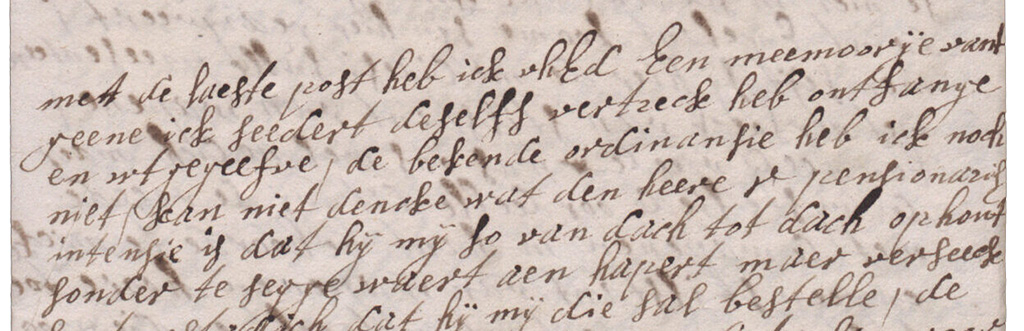 met de laeste post heb ick uhEd Een meemoorije vant
geene ick seedert deselfs vertreck heb ontfange
en wtgegeefve, de bekende ordinansie heb ick noch
niet, kan niet dencke wat den heere r pensionaris
intensie is dat hij mij so van dach tot dach ophout
sonder te segge waert aen hapert maer verseeck
dat hij mij die sal bestelle, de